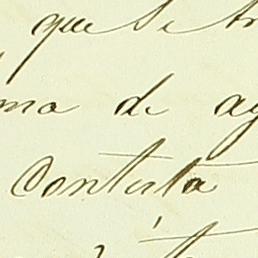 que se tr
ma de ag
Contesta